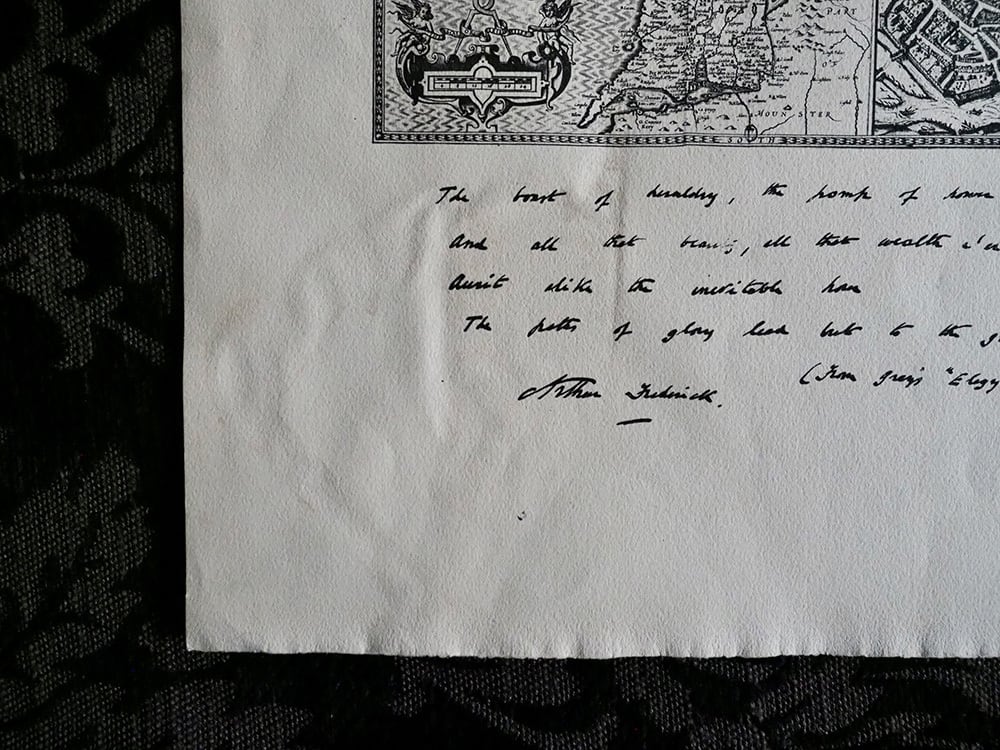 PART
OF
MOUNSTER
SOUTH
The boast of heraldry, the pomp of power
And all that beauty, all that wealth e'er
Await alike the inevitable hour
The paths of glory lead but to the g
(From Grey's "Elegy
Arthur Frederick.